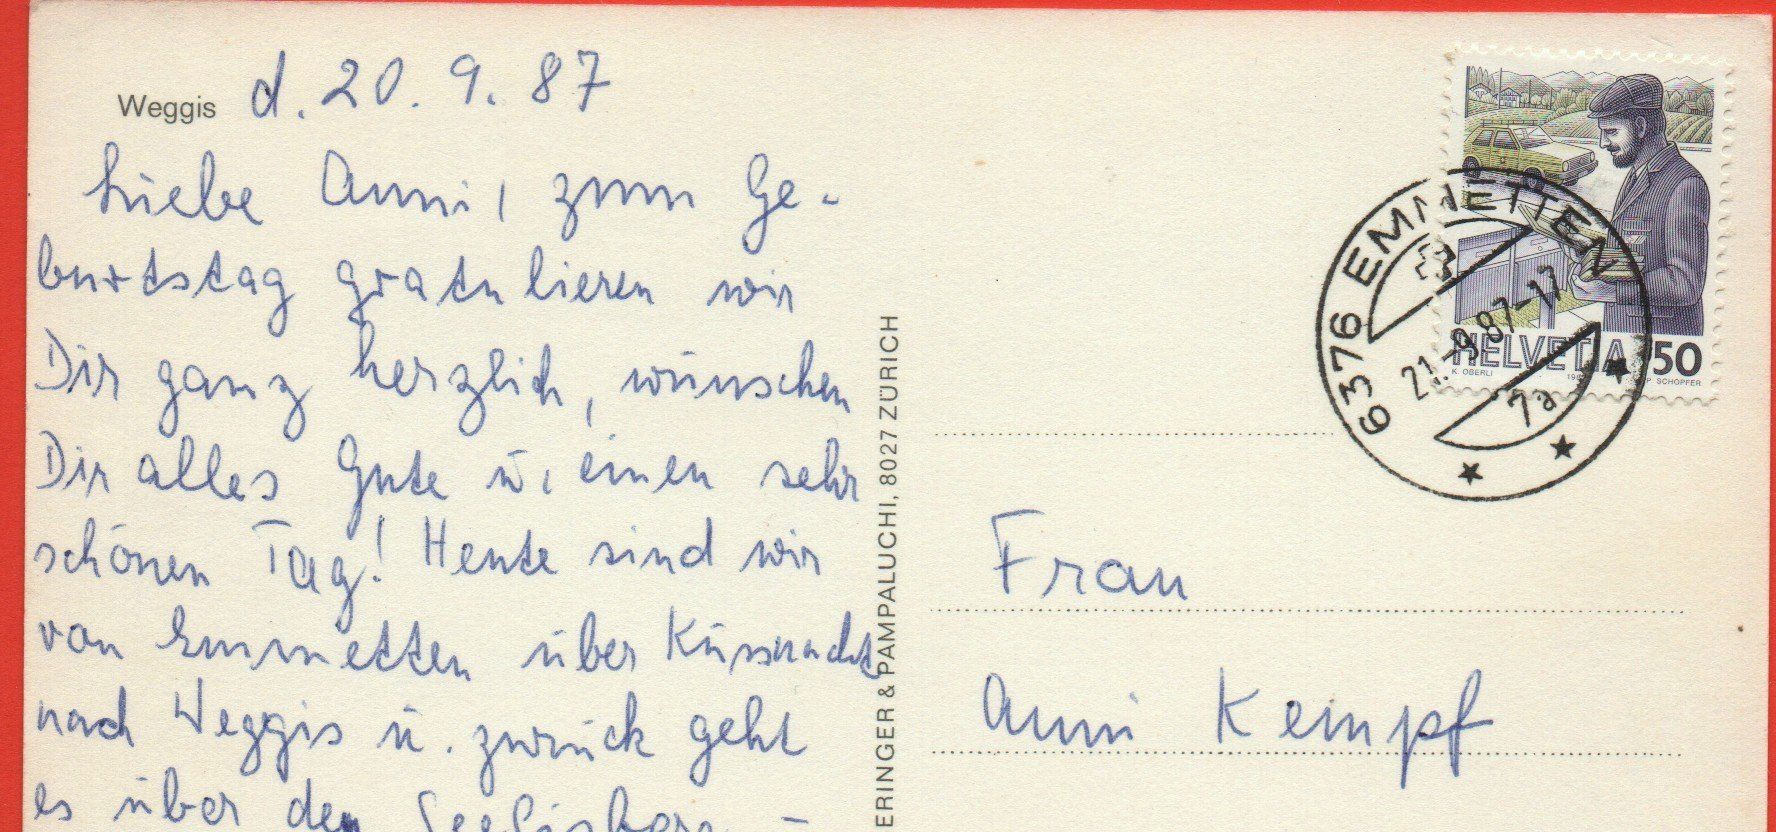 Weggis d. 20. 9. 87
Liebe Anni, zum Ge-
burtstag gratulieren wir
Dir ganz herzlich, wünschen
Dir alles Gute u. einen sehr
schönen Tag! Heute sind wir
von Emmetten über Küssnacht
nach Weggis u. zurück geht
es über den Seelisberg -
ERINGER & PAMPALUCHI, 8027 ZÜRICH
6376 EMMETTEN
21.-9.87-17
7a
HELVETIA 50
K. OBERLI
P SCHOPFER
Frau
Anni Kempf